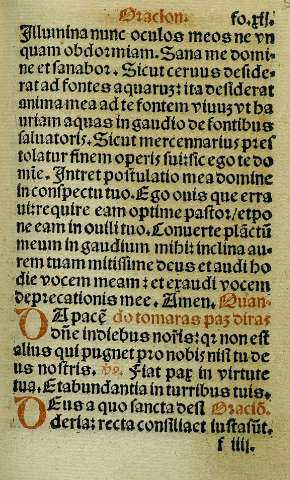 Oracion. fo.xij.
Illumina nunc oculos meos ne vn
quam obdormiam. Sana me domi-
ne et sanabor. Sicut ceruus deside-
rat ad fontes aquaruz: ita desiderat
anima mea ad te fontem viuuz vt ha
uriam aquas in gaudio de fontibus
saluatoris. Sicut mercennarius pres
tolatur finem operis sui: sic ego te do
mie. Intret postulatio mea domine
in conspectu tuo. Ego ouis que erra
ui: require eam optime pastor/ et po
ne eam in ouili tuo. Conuerte plāctū
meum in gaudium mihi: inclina au-
rem tuam mitissime deus et audi ho
die vocem meam: et exaudi vocem
deprecationis mee. Amen. Quan-
DA pacē do tomaras paz diras
dn̄e in diebus nōris: qr non est
alius qui pugnet pro nobis nisi tu de
us nostris. v̄o. Fiat pax in virtute
tua. Et abundantia in turribus tuis.
DEus a quo sancta desi Oraciō.
deria: recta consiliaet iustasūt.
f iiij.